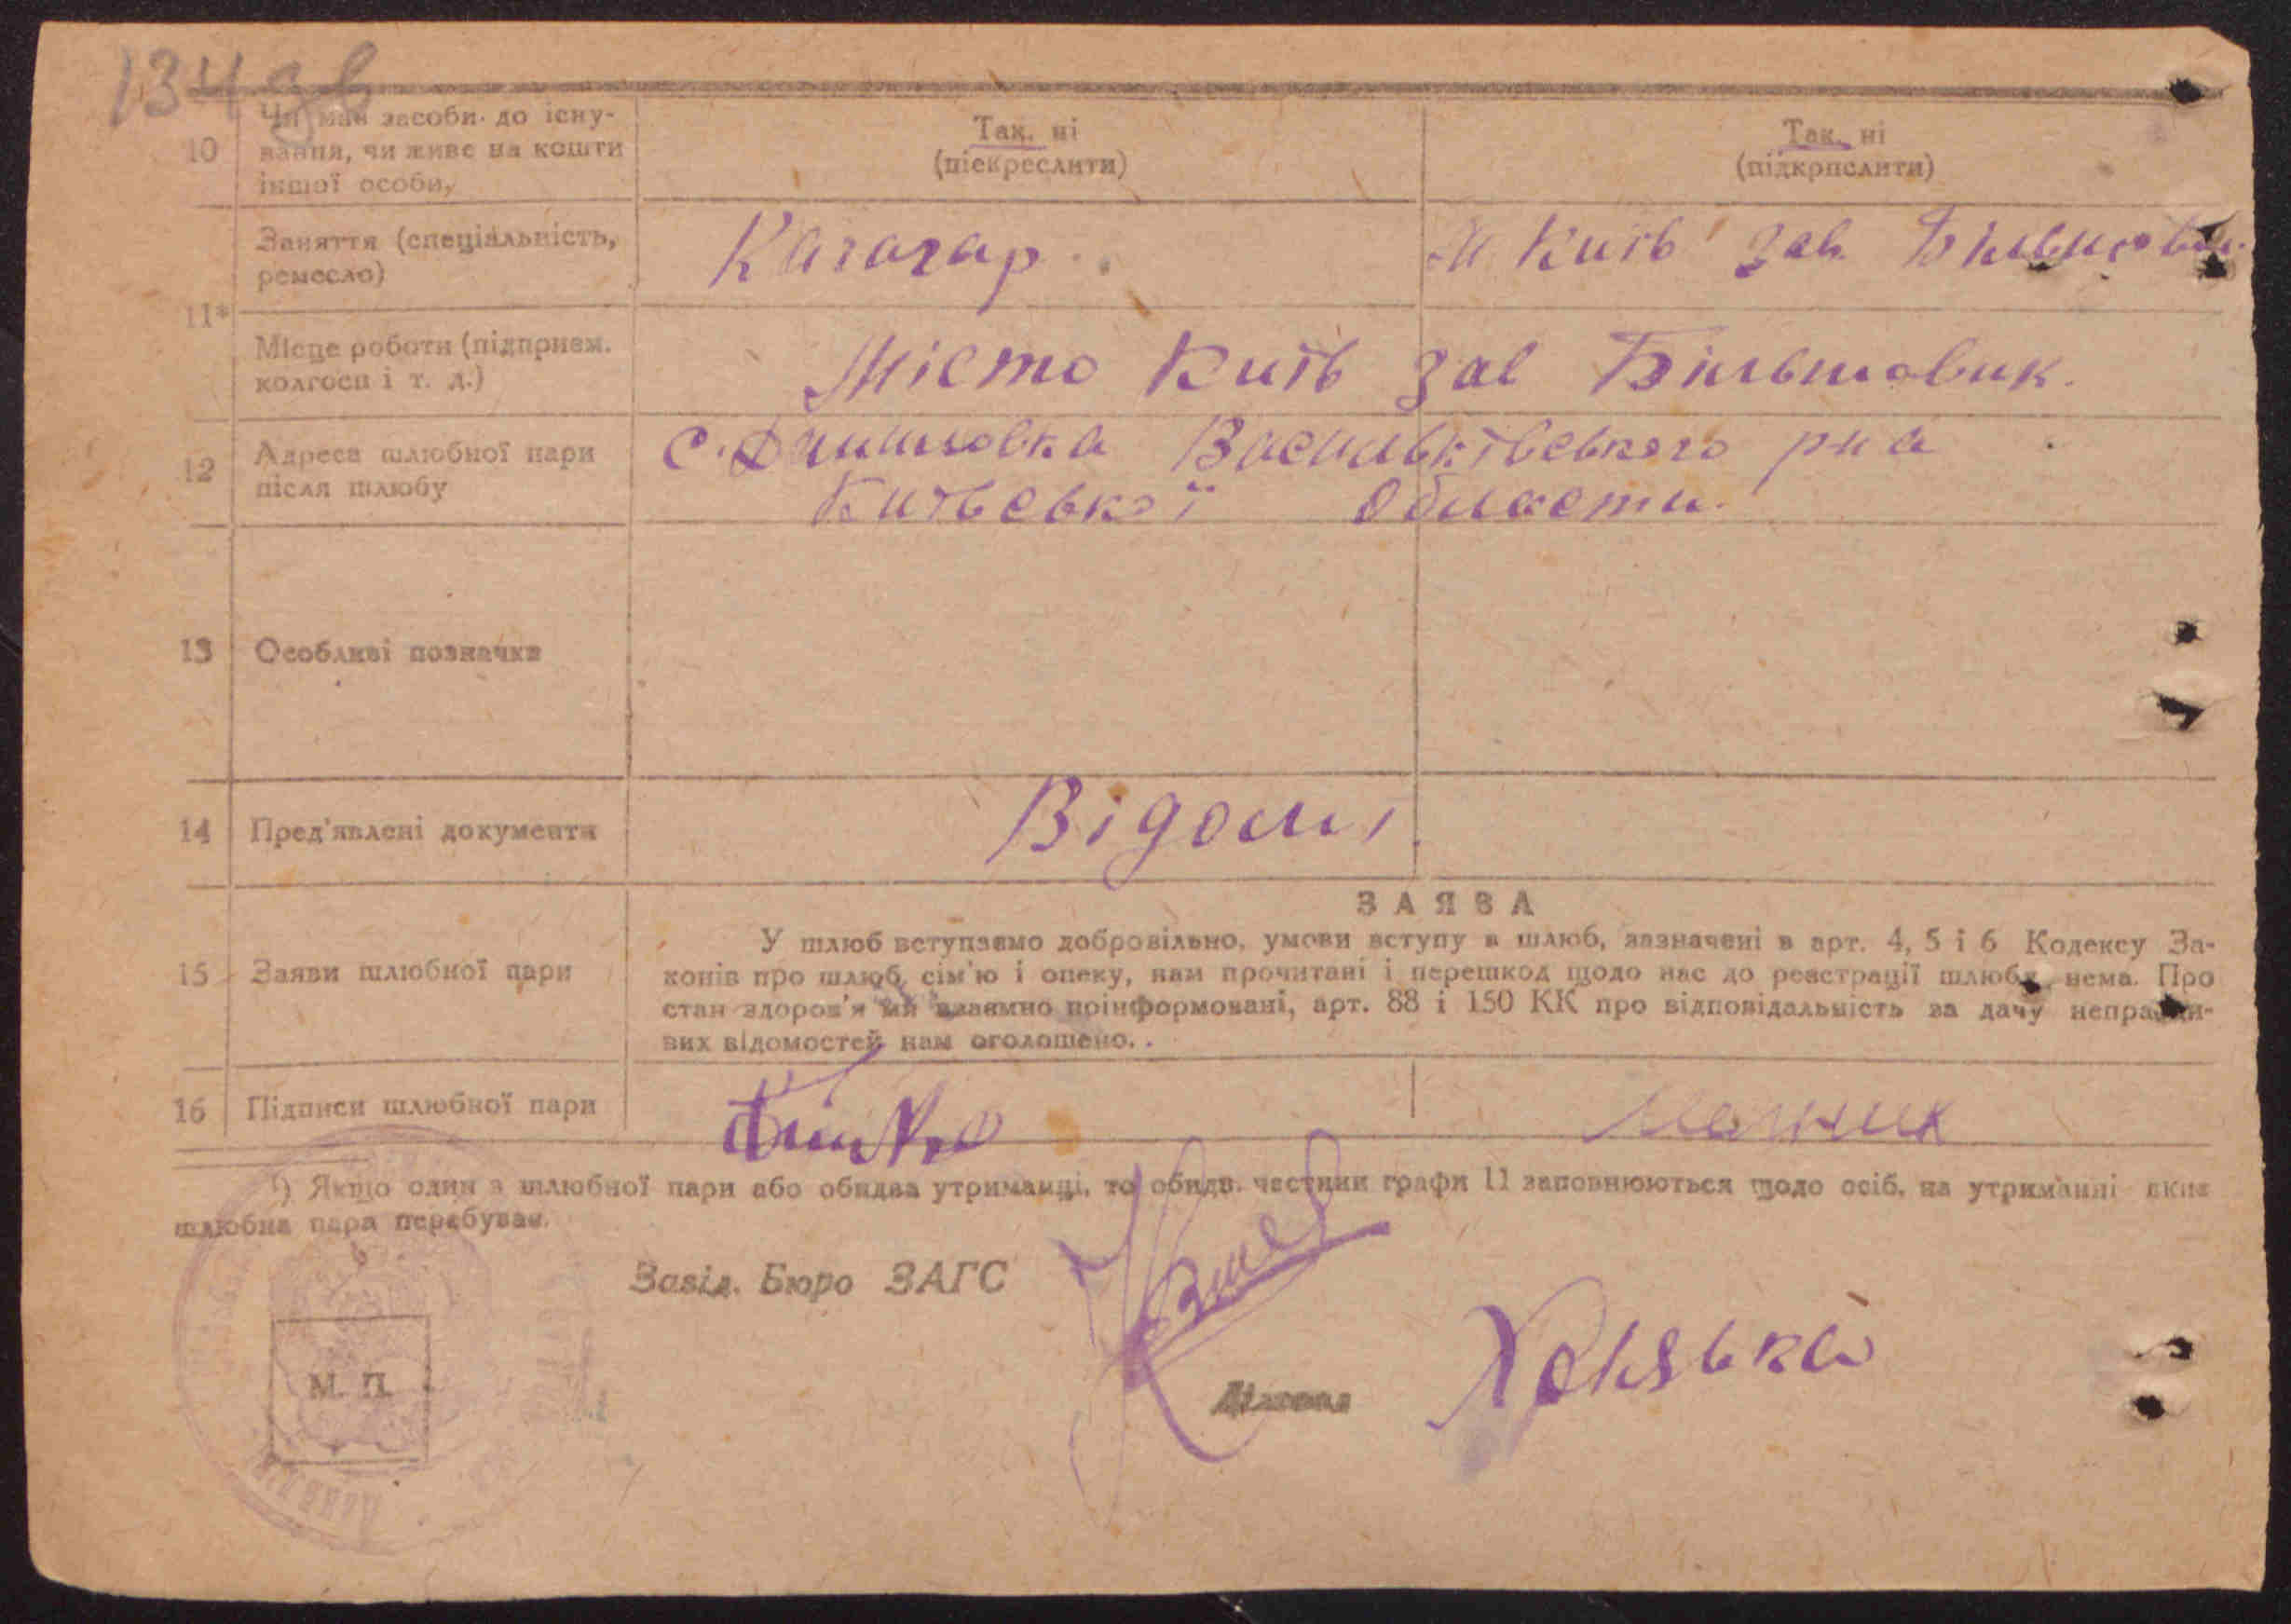 134 зв
10 Чи має засоби до існу-
вання, чи живе на кошти
іншої особи,
Так, ні
(піекреслити)
Так, ні
(підкрпслити)
11* Заняття (спеціальність,
ремесло)
Качагар
м. Київ зав. Більшовик
Місце роботи (підприєм.
колгосп і т. д.)
Місто Київ зав Більшовик.
12 Адреса шлюбної пари
після шлюбу
Васильківського рна
Київської Области.
13 Особливі позначки
14 Пред'явлені документи
Відомі
ЗАЯВА
15 Заяви шлюбної пари
У шлюб вступаємо добровільно, умови вступу в шлюб, зазначені в арт. 4, 5 і 6 Кодексу За-
конів про шлюб, сім'ю і опеку, нам прочитані і перешкод щодо нас до реєстрації шлюбу нема. Про
стан здоров'я ми взаємно поінформовані, арт. 88 і 150 КК про відповідальність за дачу неправди-
вих відомостей нам оголошено.
16 Підписи шлюбної пари
Мельник
*) Якщо один з шлюбної пари або обидва утриманці, то обидв. частини графи 11 заповнюються щодо осіб, на утриманні яких
шлюбна пара перебуває.
Завід. Бюро ЗАГС
М. П.